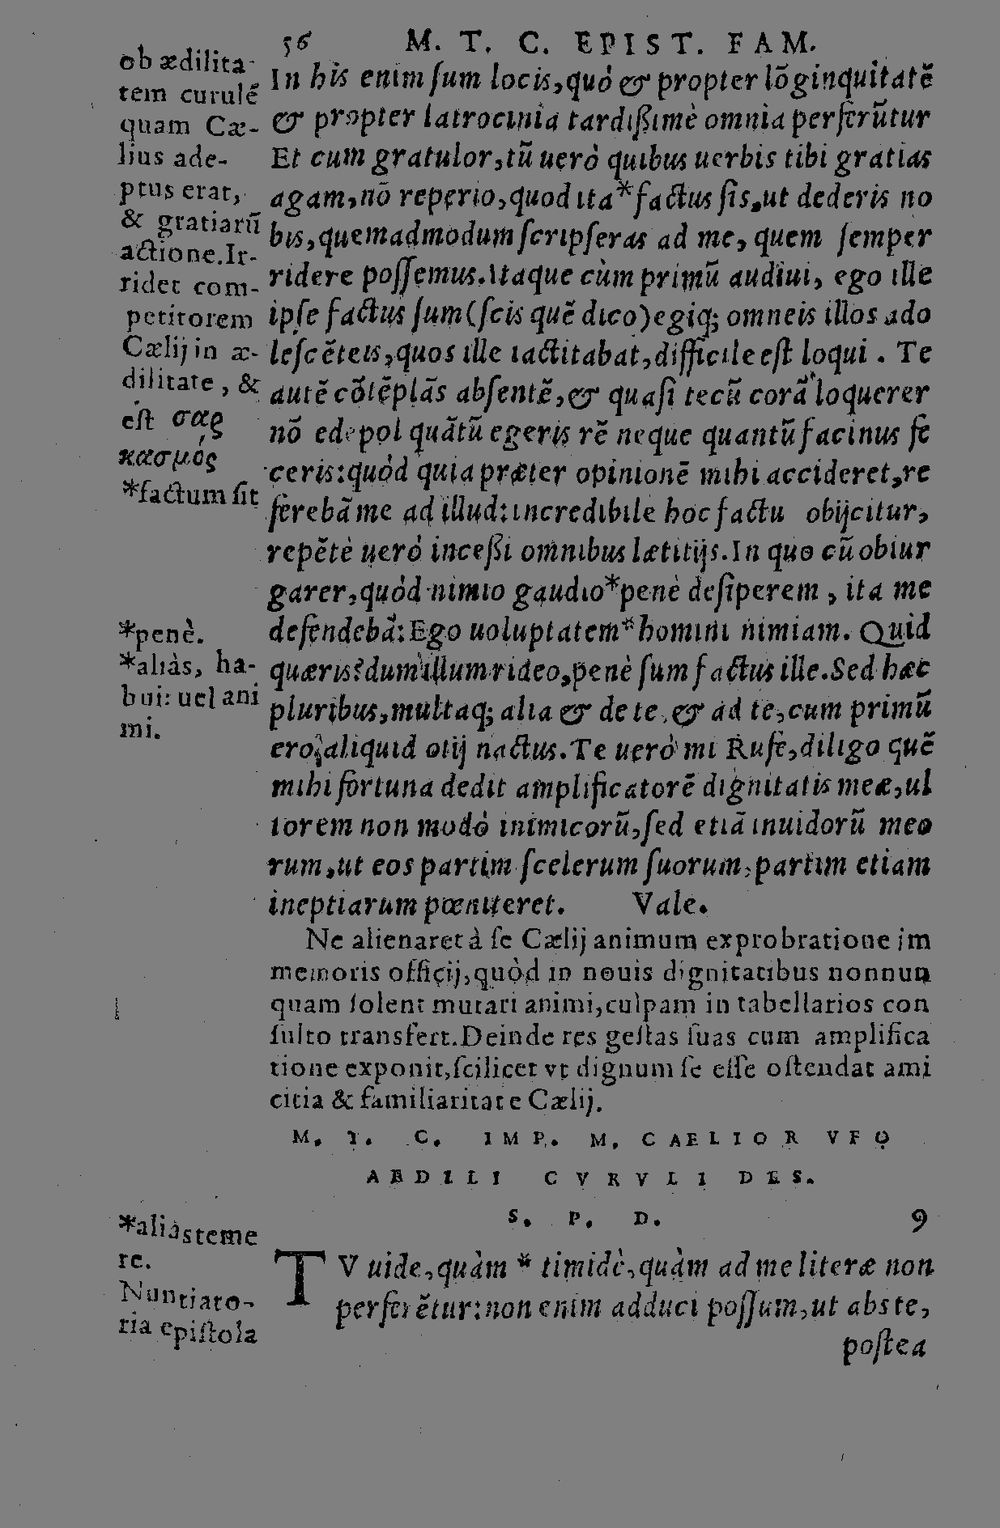 56 M. T. C. EPIST. FAM.
ob ædilita-
tem curulẽ
quam Cæ-
lius ade-
ptus erat,
& gratiarũ
actione. Ir-
ridet com-
petitorem
Cælij in æ-
dilitate, &
est σαρ
κασμός
*factum sit
*penè.
*aliàs, ha-
bui: uel ani
mi.
In his enim ſum locis, quò & propter lõginquitatẽ
& propter latrocinia tardißimè omnia perferũtur
Et cum gratulor, tũ uerò quibus uerbis tibi gratias
agam, nõ reperio, quod ita *factus ſis, ut dederis no
bis, quemadmodum ſcripſeras ad me, quem ſemper
ridere poſſemus. Itaque cùm primũ audiui, ego ille
ipſe factus ſum (ſcis quẽ dico) egiq; omneis illos ado
leſcẽteis, quos ille iactitabat, difficile eſt loqui. Te
autẽ cõtẽplãs abſentẽ, & quaſi tecũ corã loquerer
nõ edepol quãtũ egeris rẽ neque quantũ facinus fe
ceris: quòd quia præter opinionẽ mihi accideret, re
ferebã me ad illud: incredibile hoc factu obijcitur,
repẽtè uerò inceßi omnibus lætitijs. In quo cũ obiur
garer, quòd nimio gaudio *penè deſiperem, ita me
defendebã: Ego uoluptatem *homini nimiam. Quid
quæris? dum illum rideo, penè ſum factus ille. Sed hæc
pluribus, multaq; alia & de te, & ad te, cum primũ
ero, aliquid otij nactus. Te uerò mi Rufe, diligo quẽ
mihi fortuna dedit amplificatorẽ dignitatis meæ, ul
torem non modò inimicorũ, ſed etiã inuidorũ meo
rum, ut eos partim ſcelerum ſuorum, partim etiam
ineptiarum pœniteret. Vale.
Ne alienaret à ſe Cælij animum exprobratione im
memoris officij, quòd in nouis dignitatibus nonnun
quam ſolent mutari animi, culpam in tabellarios con
ſulto transfert. Deinde res geſtas ſuas cum amplifica
tione exponit, ſcilicet vt dignum ſe eſſe oſtendat ami
citia & familiaritate Cælij.
M. T. C. IMP. M. CAELIO R VFO
AEDILI CVRVLI DES.
S. P. D. 9
*aliàs teme
re.
Nuntiato-
ria epiſtola
TV uide, quàm * timidè, quàm ad me literæ non
perferẽtur: non enim adduci poſſum, ut abs te,
poſtea